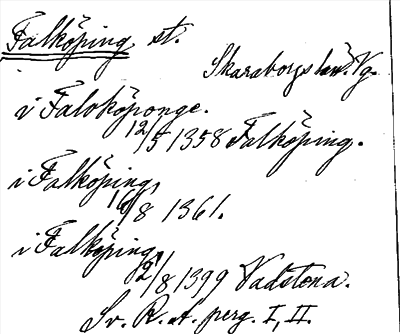 Falköping st.
Skaraborgs län. Vg.
i Faloköponge.
12/5 1358 Falköping.
i Falköping,
16/8 1361.
i Falköping,
21/8 1399 Vadstena.
Sv. R. A. perg. I, II.